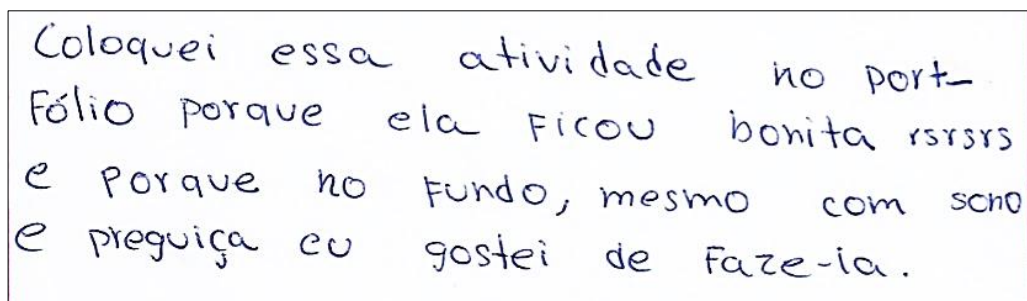 Coloquei essa atividade no port-
Fólio porque ela Ficou bonita rsrsrs
e porque no Fundo, mesmo com sono
e preguiça eu gostei de Faze-la.